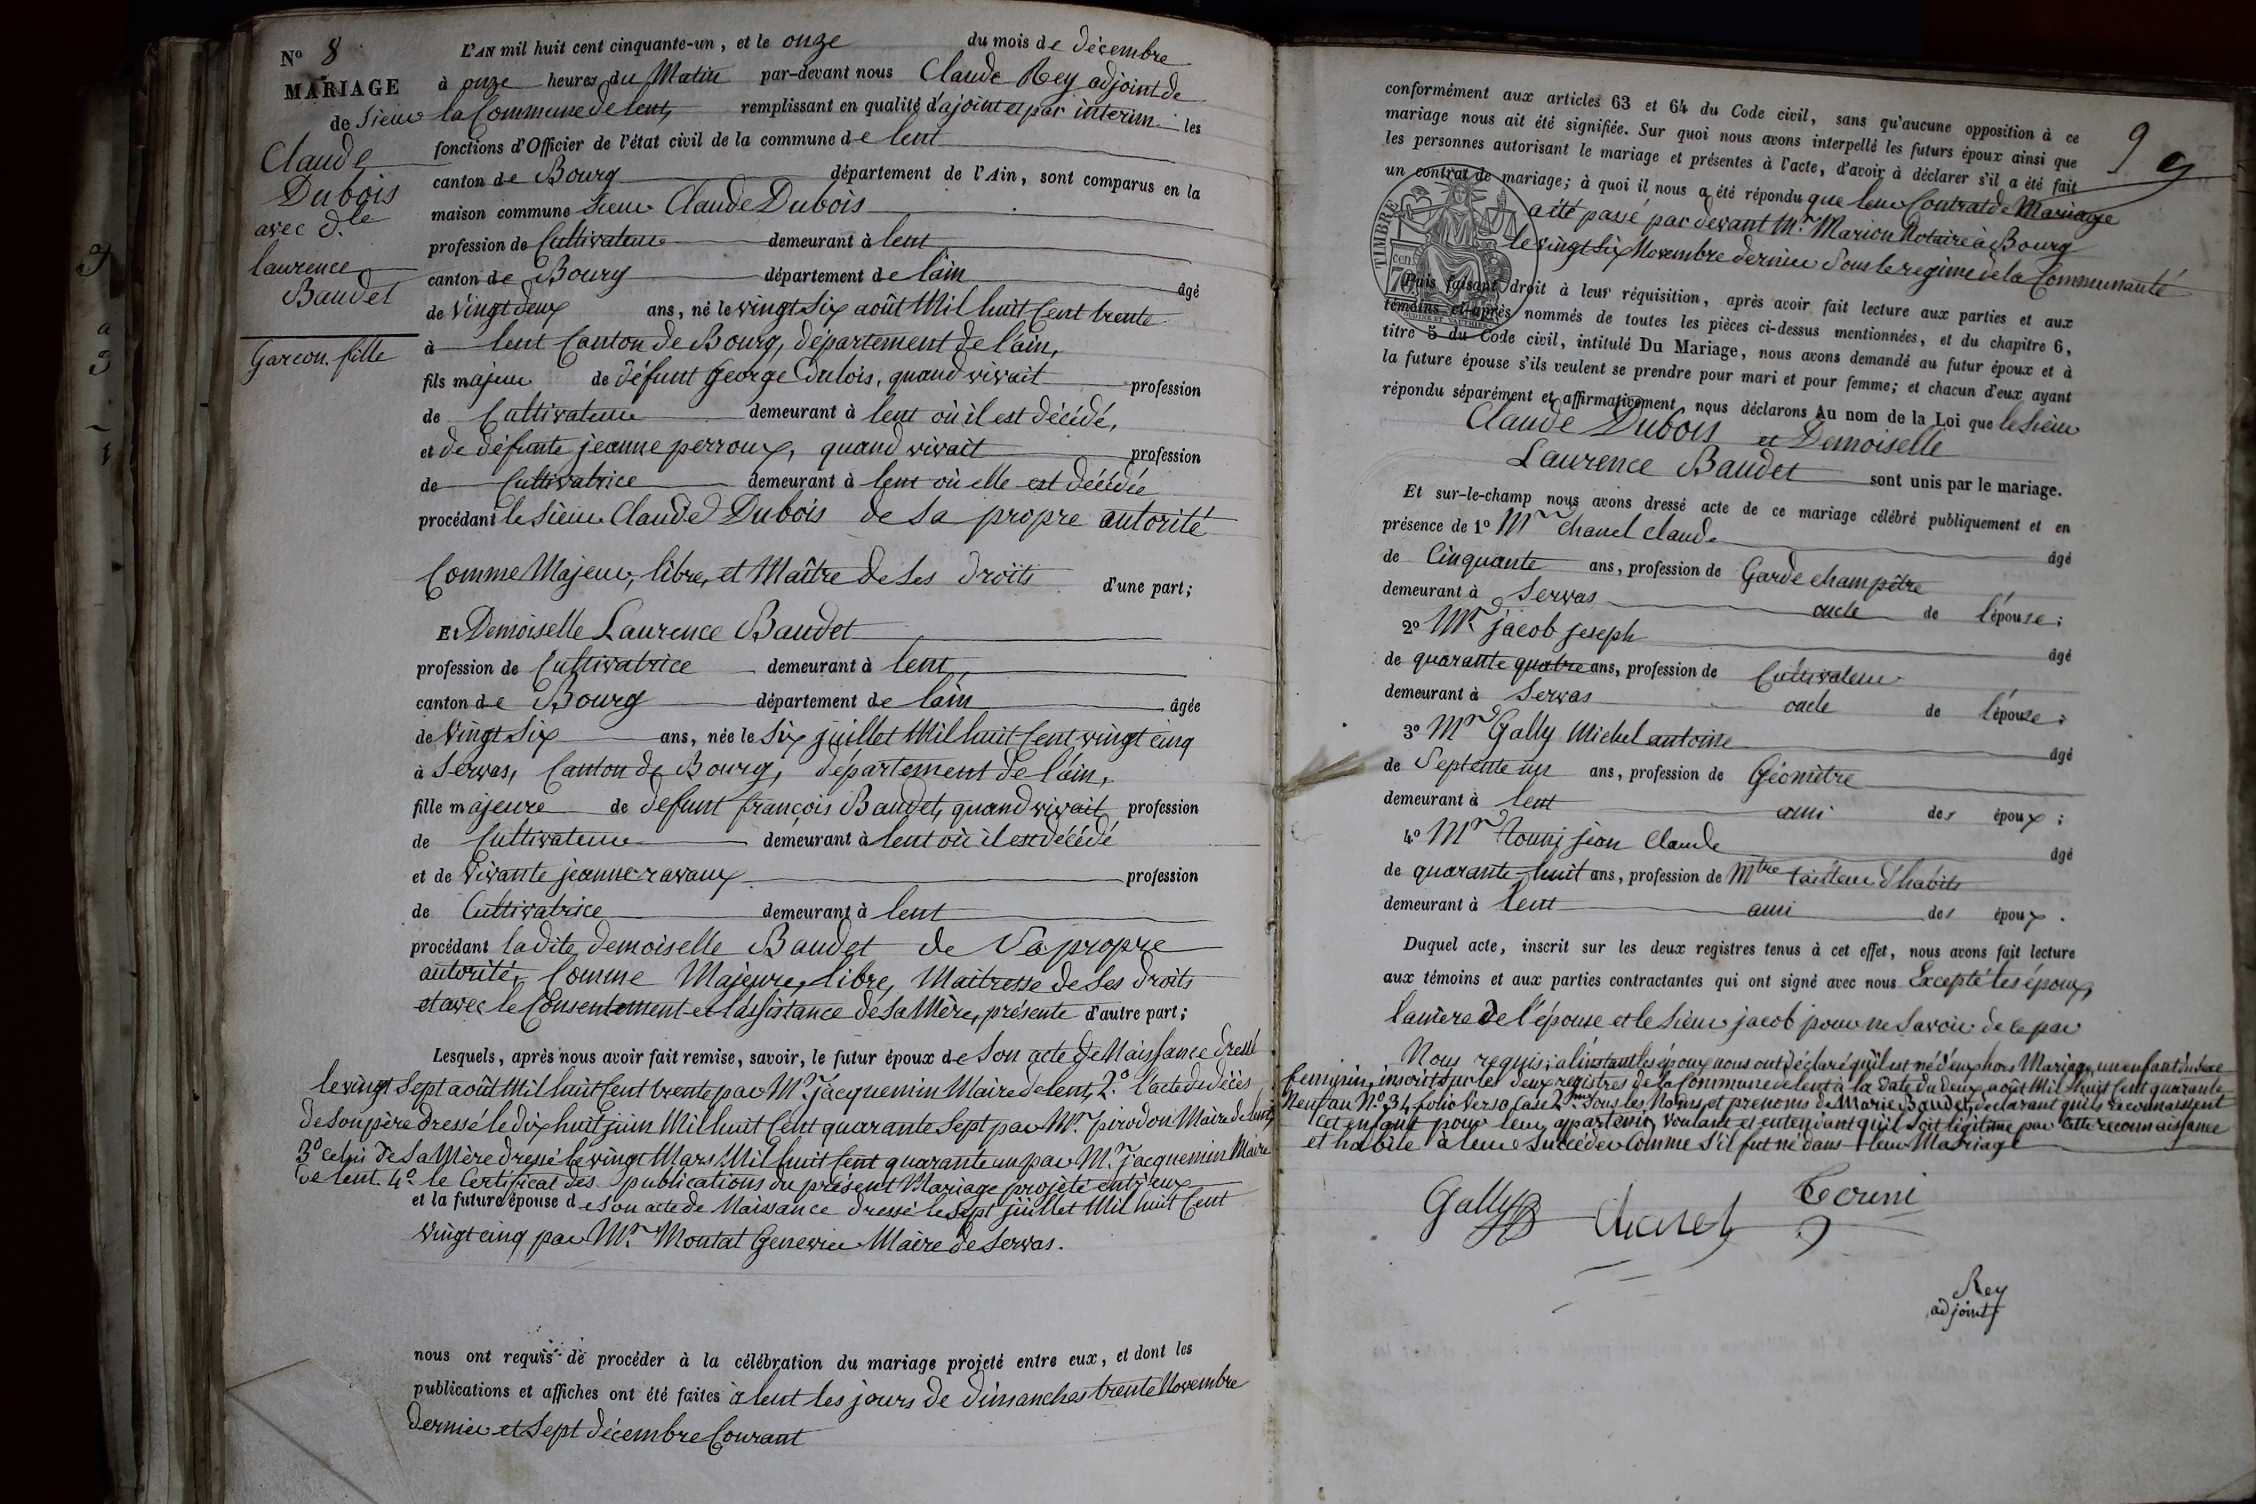 N° 8
MARIAGE
de Sieur
Claude
Dubois
avec d.le
Laurence
Baudet
Garcon. fille
L'AN mil huit cent cinquante-un, et le onze du mois de décembre
à onze heures du Matin par-devant nous Claude Rey adjoint de
la Commune de lent, remplissant en qualité d'ajoint et par interim les
fonctions d'Officier de l'état civil de la commune de lent
canton de Bourg département de l'Ain, sont comparus en la
maison commune Sieur Claude Dubois
profession de Cultivateur demeurant à lent
canton de Bourg département de l'ain âgé
de Vingt deux ans, né le vingt Six août Mil huit Cent trente
à lent Canton de Bourg, département de l'ain,
fils majeur de défunt George Dubois, quand vivait profession
de Cultivateur demeurant à lent où il est décédé,
et de défunte jeanne perroux, quand vivait profession
de Cultivatrice demeurant à lent où elle est décédée
procédant le Sieur Claude Dubois de Sa propre autorité
Comme Majeur, libre, et Maître de Ses droits d'une part;
Et Demoiselle Laurence Baudet
profession de Cultivatrice demeurant à lent
canton de Bourg département de l'ain âgée
de Vingt Six ans, née le Six juillet Mil huit Cent vingt cinq
à Servas, Canton de Bourg, département de l'ain,
fille majeure de défunt françois Baudet, quand vivait profession
de Cultivateur demeurant à lent où il est décédé
et de Vivante jeanne ravaux profession
de Cultivatrice demeurant à lent
procédant ladite demoiselle Baudet de Sa propre
autorité, Comme Majeure, libre, Maitresse de Ses droits
et avec le Consentement et l'assistance de Sa Mère, présente d'autre part;
Lesquels, après nous avoir fait remise, savoir, le futur époux de Son acte de Naissance dressé
le vingt Sept août Mil huit Cent trente par Mr. jacquemin Maire de lent, 2.° l'acte de décès
de Son père dressé le dix huit juin Mil huit Cent quarante Sept par Mr. pirodon Maire de lent,
3° celui de Sa Mère dressé le vingt Mars Mil huit Cent quarante un par Mr. jacquemin Maire
de lent. 4.° le Certificat des publications du présent Mariage projeté entr'eux
et la future épouse de Son acte de Naissance dressé le Sept juillet Mil huit Cent
vingt cinq par Mr. Montat Genevrier Maire de Servas.
nous ont requis de procéder à la célébration du mariage projeté entre eux, et dont les
publications et affiches ont été faites à lent les jours de dimanches trente Novembre
dernier et Sept décembre Courant
9 9
conformément aux articles 63 et 64 du Code civil, sans qu'aucune opposition à ce
mariage nous ait été signifiée. Sur quoi nous avons interpellé les futurs époux ainsi que
les personnes autorisant le mariage et présentes à l'acte, d'avoir à déclarer s'il a été fait
un contrat de mariage; à quoi il nous a été répondu que leur Contrat de Mariage
a été passé par devant Mr. Marion Notaire à Bourg
le vingt Six Novembre dernier Sous le regime de la Communauté
TIMBRE
Puis faisant droit à leur réquisition, après avoir fait lecture aux parties et aux
témoins ci-après nommés de toutes les pièces ci-dessus mentionnées, et du chapitre 6,
titre 5 du Code civil, intitulé Du Mariage, nous avons demandé au futur époux et à
la future épouse s'ils veulent se prendre pour mari et pour femme; et chacun d'eux ayant
répondu séparément et affirmativement, nous déclarons Au nom de la Loi que le Sieur
Claude Dubois et Demoiselle
Laurence Baudet sont unis par le mariage.
Et sur-le-champ nous avons dressé acte de ce mariage célébré publiquement et en
présence de 1° Mr Chanel Claude âgé
de Cinquante ans, profession de Garde champêtre
demeurant à Servas oncle de l'épouse;
2° Mr jacob joseph âgé
de quarante quatre ans, profession de Cultivateur
demeurant à Servas oncle de l'épouse;
3° Mr Gally Michel antoine âgé
de Septente un ans, profession de Géomètre
demeurant à lent ami des époux;
4° Mr jean Claude âgé
de quarante-huit ans, profession de Mtre tailleur d'habits
demeurant à lent ami des époux.
Duquel acte, inscrit sur les deux registres tenus à cet effet, nous avons fait lecture
aux témoins et aux parties contractantes qui ont signé avec nous Excepté les époux,
la mère de l'épouse et le Sieur jacob pour ne Savoir de ce par
Nous requis; a l'instant les époux nous ont déclaré qu'il est né d'eux hors Mariage, un enfant du Sexe
feminin, inscrit sur les deux registres de la Commune de lent à la date du deux août Mil huit Cent quarante
Neuf au N.° 34 folio Verso Case 2.me Sous les Noms et prenoms de Marie Baudet, declarant qu'ils reconnaissent
cet enfant pour leur appartenir, Voulant et entendant qu'il Soit légitimé par cette reconnaissance
et habile à leur Succéder Comme S'il fut né dans leur Mariage
Gally
Chanel
Rey
adjoint